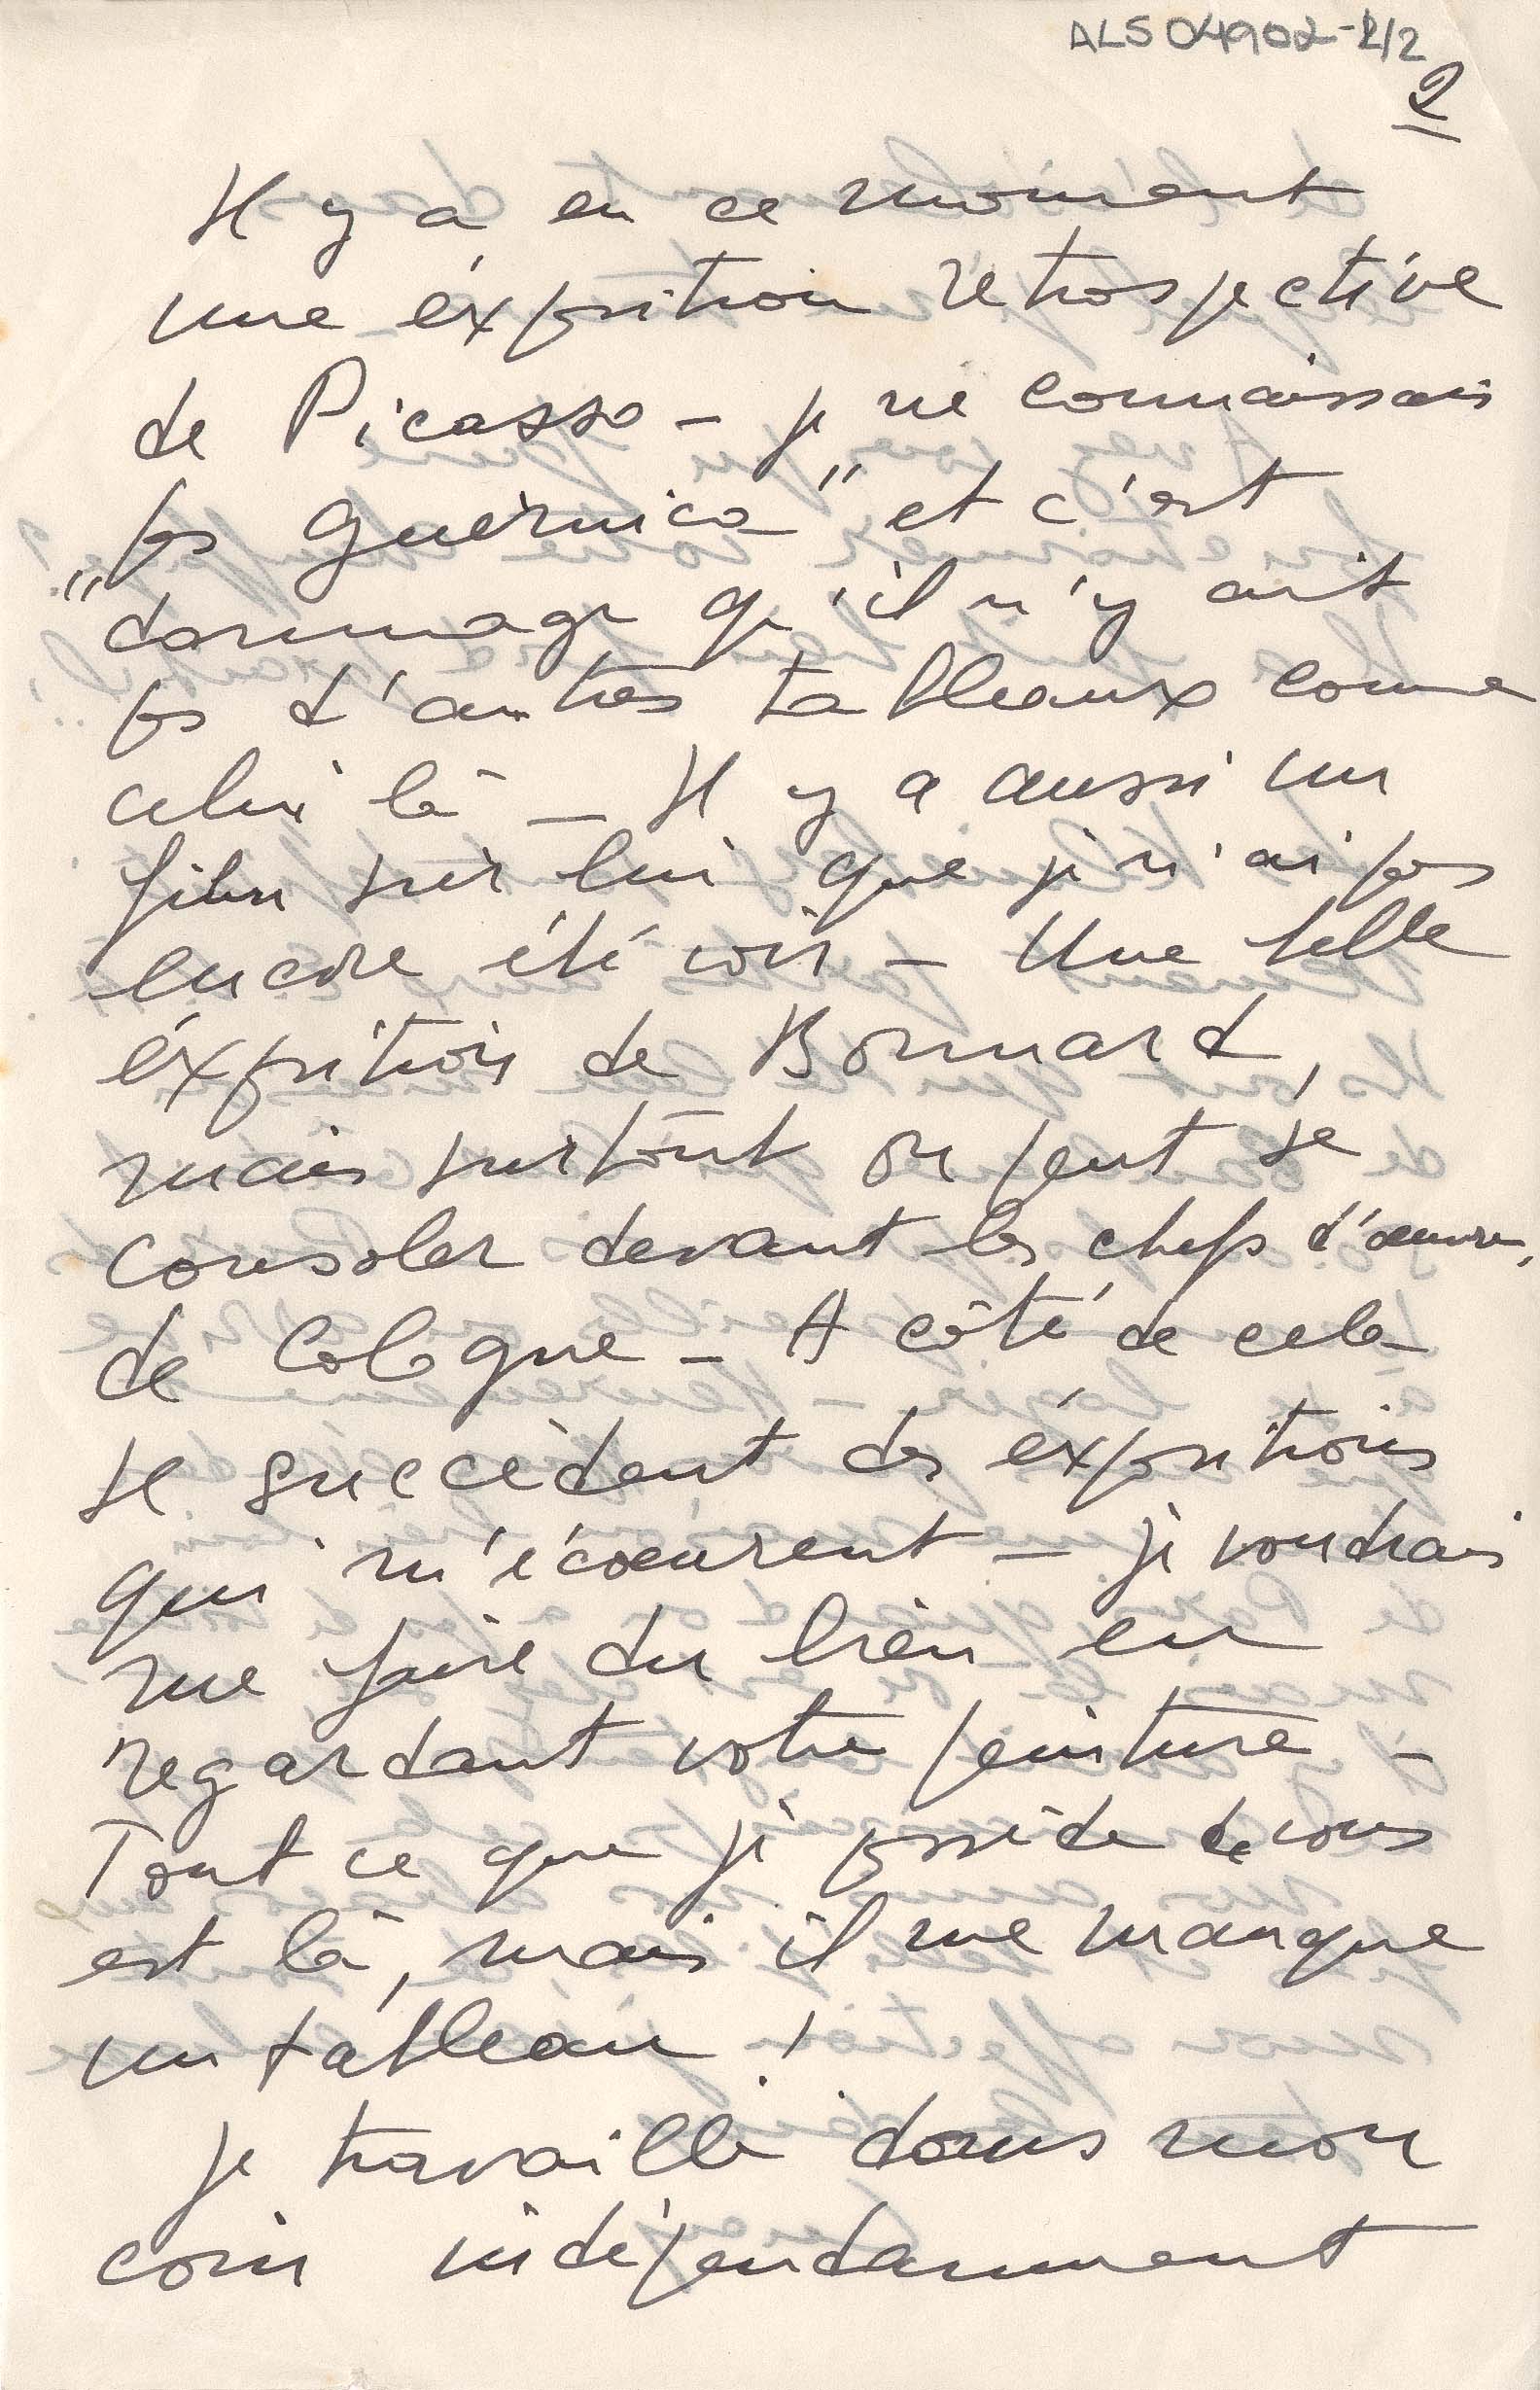 ALS 04902-2/2
2
Il y a en ce moment
une éxposition rétrospective
de Picasso – je ne connaissais
pas "Guernica" et c'est
dommage qu'il n'y ait
pas d'autres tableaux comme
celui là – Il y a aussi un
film sur lui que je n'ai pas
encore été voir – Une belle
éxposition de Bonnard,
mais surtout on peut se
consoler devant les chefs d'œuvres,
de Cologne – A côté de cela
se succèdent des éxpositions
qui m'écœurent – je voudrais
me faire du bien en
regardant votre peinture –
Tout ce que je possède de vous
est là, mais il me manque
un tableau !
Je travaille dans mon
coin indépendamment